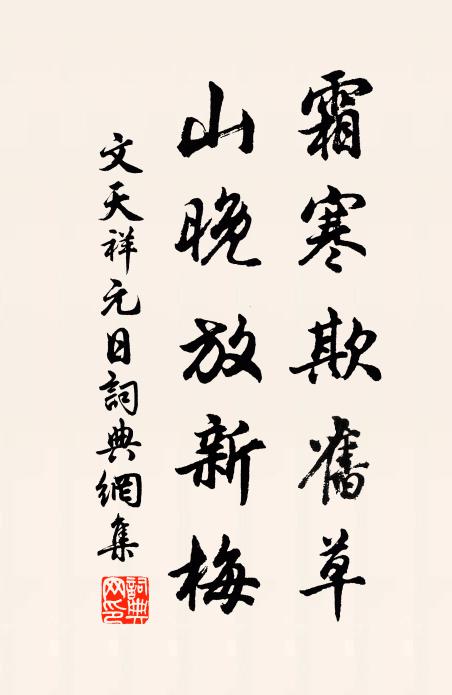 霜寒欺舊草
山晚放新梅
文天祥元日詞典網集
詞典网印